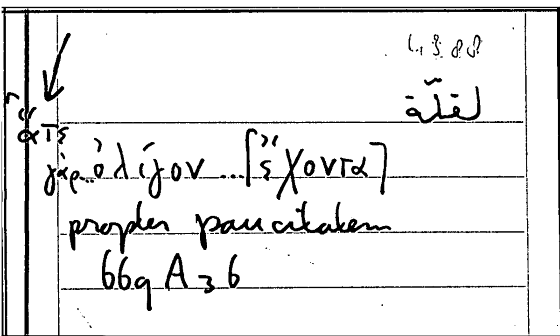 لقلّة
ἅτε
γὰρ..ὀλίγον ...[ἔχοντα]
propter paucitatem
669 A 36